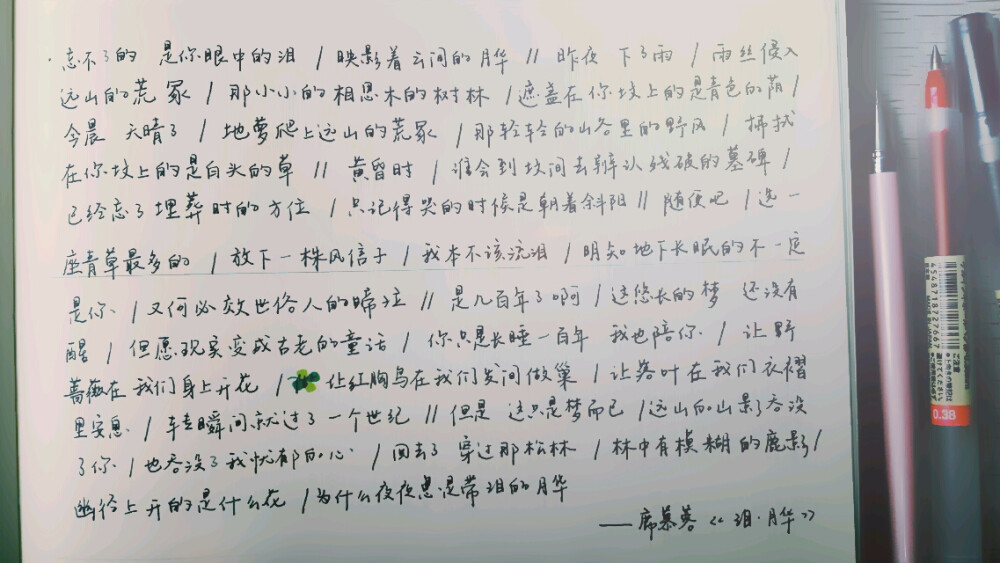 · 忘不了的 是你眼中的泪 / 映影着云间的月华 // 昨夜 下了雨 / 雨丝侵入
远山的荒冢 / 那小小的相思木的树林 / 遮盖在你坟上的是青色的荫 /
今晨 天晴了 / 地萝爬上远山的荒冢 / 那轻轻的山谷里的野风 / 拂拭
在你坟上的是白头的草 // 黄昏时 / 谁会到坟间去辨认残破的墓碑 /
已经忘了埋葬时的方位 / 只记得哭的时候是朝着斜阳 // 随便吧 / 选一
座青草最多的 / 放下一株风信子 / 我本不该流泪 / 明知地下长眠的不一定
是你 / 又何必效世俗人的啼泣 // 是几百年了啊 / 这悠长的梦 还没有
醒 / 但愿现实变成古老的童话 / 你只是长睡一百年 我也陪你 / 让野
蔷薇在我们身上开花 / 让红胸鸟在我们发间做巢 / 让落叶在我们衣褶
里安息 / 转瞬间就过了一个世纪 // 但是 这只是梦而已 / 远山的山影吞没
了你 / 也吞没了我忧郁的心 / 回去了 穿过那松林 / 林中有模糊的鹿影 /
幽径上开的是什么花 / 为什么夜夜总是带泪的月华
——席慕蓉《泪·月华》
4548718727667
0.38